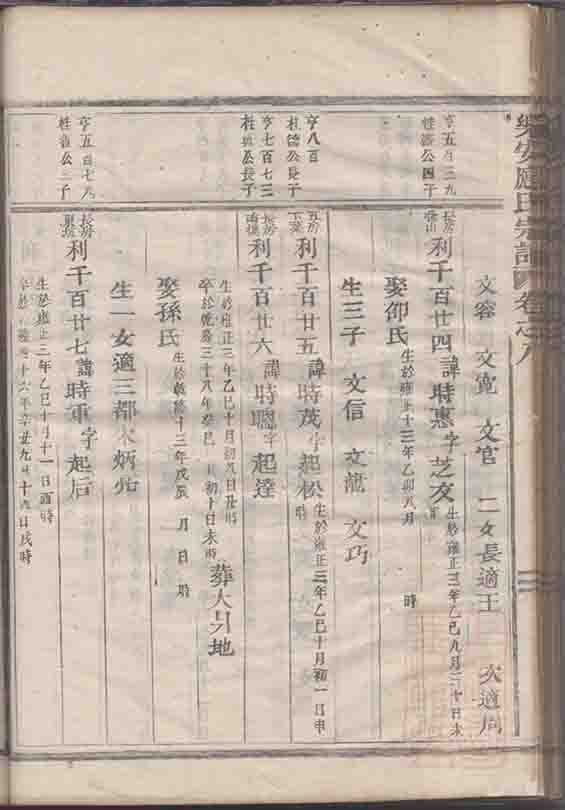 樂安應氏宗譜 卷之八
文容 文寬 文官 二女長適王 次適周
亨五百三九
公四子
長房
利千百廿四諱時惠字芝文
生於雍正三年乙巳九月二十日未時
娶邵氏
生於雍正十三年乙卯八月 時
生三子 文信 文龍 文巧
亨八百
桂德公長子
利千百廿五諱時茂字起松
生於雍正三年乙巳十月初一日申時
亨七百七三
公長子
長房
利千百廿六諱時聰字起達
生於雍正三年乙巳十月初九日丑時
卒於乾隆三十八年癸巳 月初十日未時
葬大 地
娶孫氏
生於乾隆十三年戊辰 月 日 時
生一女適三都 炳
亨五百七
公 子
長房
利千百廿七諱時軍字起后
生於雍正三年乙巳十月十一日酉時
卒於 十六年 九月十 日戌時